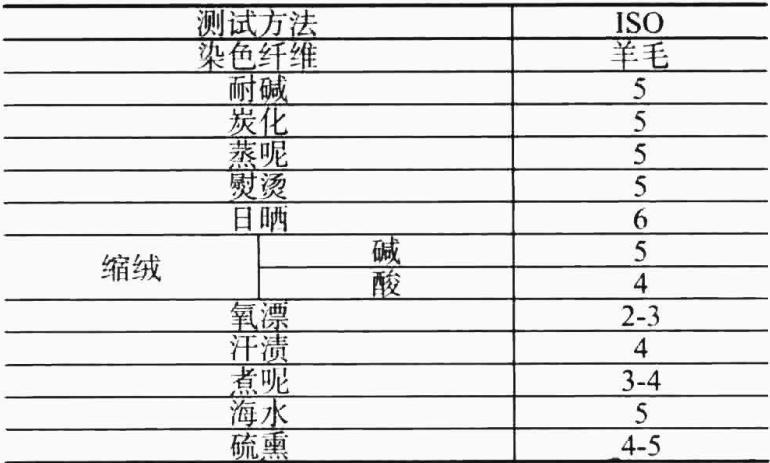 测试方法 ISO
染色纤维 羊毛
耐碱 5
炭化 5
蒸呢 5
熨烫 5
日晒 6
缩绒 碱 5
酸 4
氧漂 2-3
汗渍 4
煮呢 3-4
海水 5
硫熏 4-5